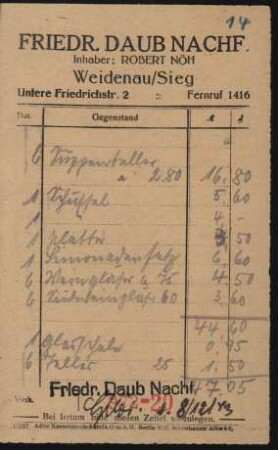 14
FRIEDR. DAUB NACHF.
Inhaber: ROBERT NÖH
Weidenau/Sieg
Untere Friedrichstr. 2 Fernruf 1416
Dat. Gegenstand
6 Suppenteller
a 2.80 16,80
1 Schüssel 5,60
1 4,-
1 Platte 3,50
1 Limonadensatz 6,60
6 Weingläser a 75 4,50
6 Südweingläs. 60 3,60
44,60
1 Glasschale 0,95
6 Teller 25 1,50
47,05
Friedr. Daub Nachf.
Verk.
8/12/43
Bei Irrtum bitte diesen Zettel vorlegen.